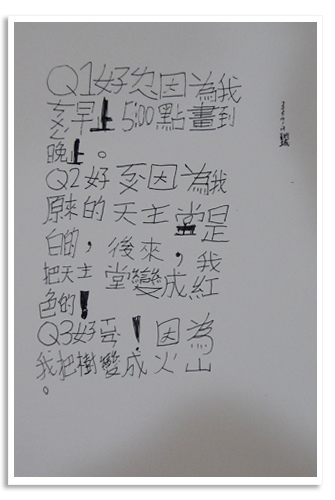 Q1好因為我
早上5:00點畫到
晚上。
Q2好因為我
原來的天主堂是
白的，後來，我
把天主堂變成紅
色的！
Q3好！因為
我把樹變成火山
。